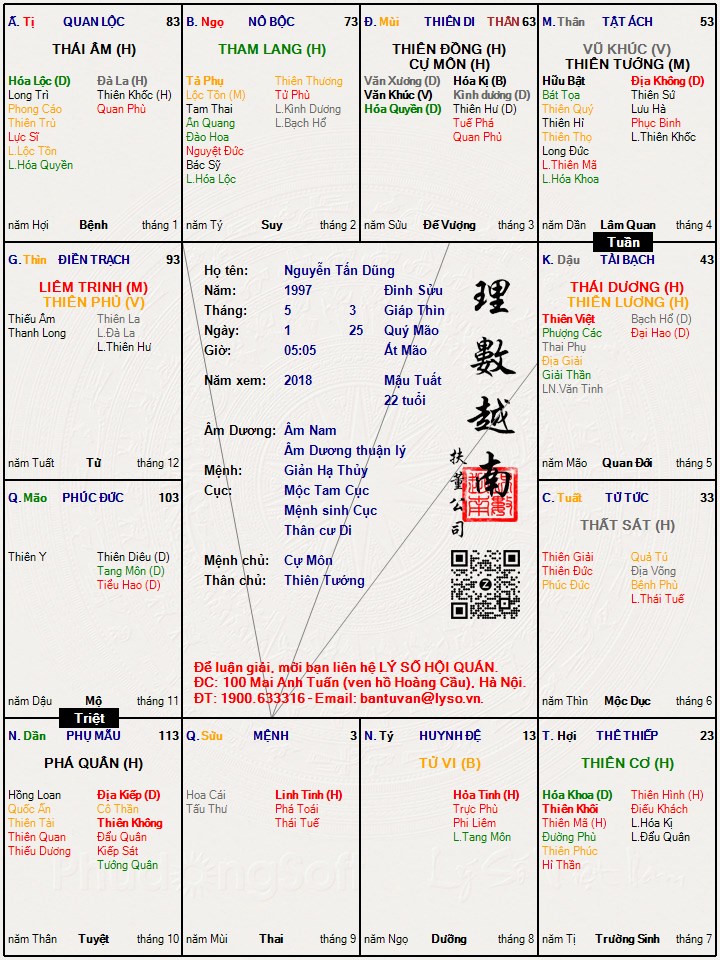 Ấ. Tị QUAN LỘC 83
THÁI ÂM (H)
Hóa Lộc (D) Đà La (H)
Long Trì Thiên Khốc (H)
Phong Cáo Quan Phù
Thiên Trù
Lực Sĩ
L.Lộc Tồn
L.Hóa Quyền
năm Hợi Bệnh tháng 1
B. Ngọ NÔ BỘC 73
THAM LANG (H)
Tả Phụ Thiên Thương
Lộc Tồn (M) Tử Phù
Tam Thai L.Kình Dương
Ân Quang L.Bạch Hổ
Đào Hoa
Nguyệt Đức
Bác Sỹ
L.Hóa Lộc
năm Tý Suy tháng 2
Đ. Mùi THIÊN DI THÂN 63
THIÊN ĐỒNG (H)
CỰ MÔN (H)
Văn Xương (D) Hóa Kị (B)
Văn Khúc (V) Kình dương (D)
Hóa Quyền (D) Thiên Hư (D)
Tuế Phá
Quan Phủ
năm Sửu Đế Vượng tháng 3
M. Thân TẬT ÁCH 53
VŨ KHÚC (V)
THIÊN TƯỚNG (M)
Hữu Bật Địa Không (D)
Bát Tọa Thiên Sứ
Thiên Quý Lưu Hà
Thiên Hỉ Phục Binh
Thiên Thọ L.Thiên Khốc
Long Đức
L.Thiên Mã
L.Hóa Khoa
năm Dần Lâm Quan tháng 4
Tuần
G. Thìn ĐIỀN TRẠCH 93
LIÊM TRINH (M)
THIÊN PHỦ (V)
Thiếu Âm Thiên La
Thanh Long L.Đà La
L.Thiên Hư
năm Tuất Tử tháng 12
Họ tên: Nguyễn Tấn Dũng
Năm: 1997 Đinh Sửu
Tháng: 5 3 Giáp Thìn
Ngày: 1 25 Quý Mão
Giờ: 05:05 Ất Mão
Năm xem: 2018 Mậu Tuất
22 tuổi
Âm Dương: Âm Nam
Âm Dương thuận lý
Mệnh: Giản Hạ Thủy
Cục: Mộc Tam Cục
Mệnh sinh Cục
Thân cư Di
Mệnh chủ: Cự Môn
Thân chủ: Thiên Tướng
理數越南
扶董公司
Để luận giải, mời bạn liên hệ LÝ SỐ HỘI QUÁN.
ĐC: 100 Mai Anh Tuấn (ven hồ Hoàng Cầu), Hà Nội.
ĐT: 1900.633316 - Email: bantuvan@lyso.vn.
K. Dậu TÀI BẠCH 43
THÁI DƯƠNG (H)
THIÊN LƯƠNG (H)
Thiên Việt Bạch Hổ (D)
Phượng Các Đại Hao (D)
Thai Phụ
Địa Giải
Giải Thần
LN.Văn Tinh
năm Mão Quan Đới tháng 5
Q. Mão PHÚC ĐỨC 103
Thiên Y Thiên Diêu (D)
Tang Môn (D)
Tiểu Hao (D)
năm Dậu Mộ tháng 11
Triệt
C. Tuất TỬ TỨC 33
THẤT SÁT (H)
Thiên Giải Quả Tú
Thiên Đức Địa Võng
Phúc Đức Bệnh Phù
L.Thái Tuế
năm Thìn Mộc Dục tháng 6
N. Dần PHỤ MẪU 113
PHÁ QUÂN (H)
Hồng Loan Địa Kiếp (D)
Quốc Ấn Cô Thần
Thiên Tài Thiên Không
Thiên Quan Đẩu Quân
Thiếu Dương Kiếp Sát
Tướng Quân
năm Thân Tuyệt tháng 10
Q. Sửu MỆNH 3
Hoa Cái Linh Tinh (H)
Tấu Thư Phá Toái
Thái Tuế
năm Mùi Thai tháng 9
N. Tý HUYNH ĐỆ 13
TỬ VI (B)
Hỏa Tinh (H)
Trực Phù
Phi Liêm
L.Tang Môn
năm Ngọ Dưỡng tháng 8
T. Hợi THÊ THIẾP 23
THIÊN CƠ (H)
Hóa Khoa (D) Thiên Hình (H)
Thiên Khôi Điếu Khách
Thiên Mã (H) L.Hóa Kị
Đường Phù L.Đẩu Quân
Thiên Phúc
Hỉ Thần
năm Tị Trường Sinh tháng 7